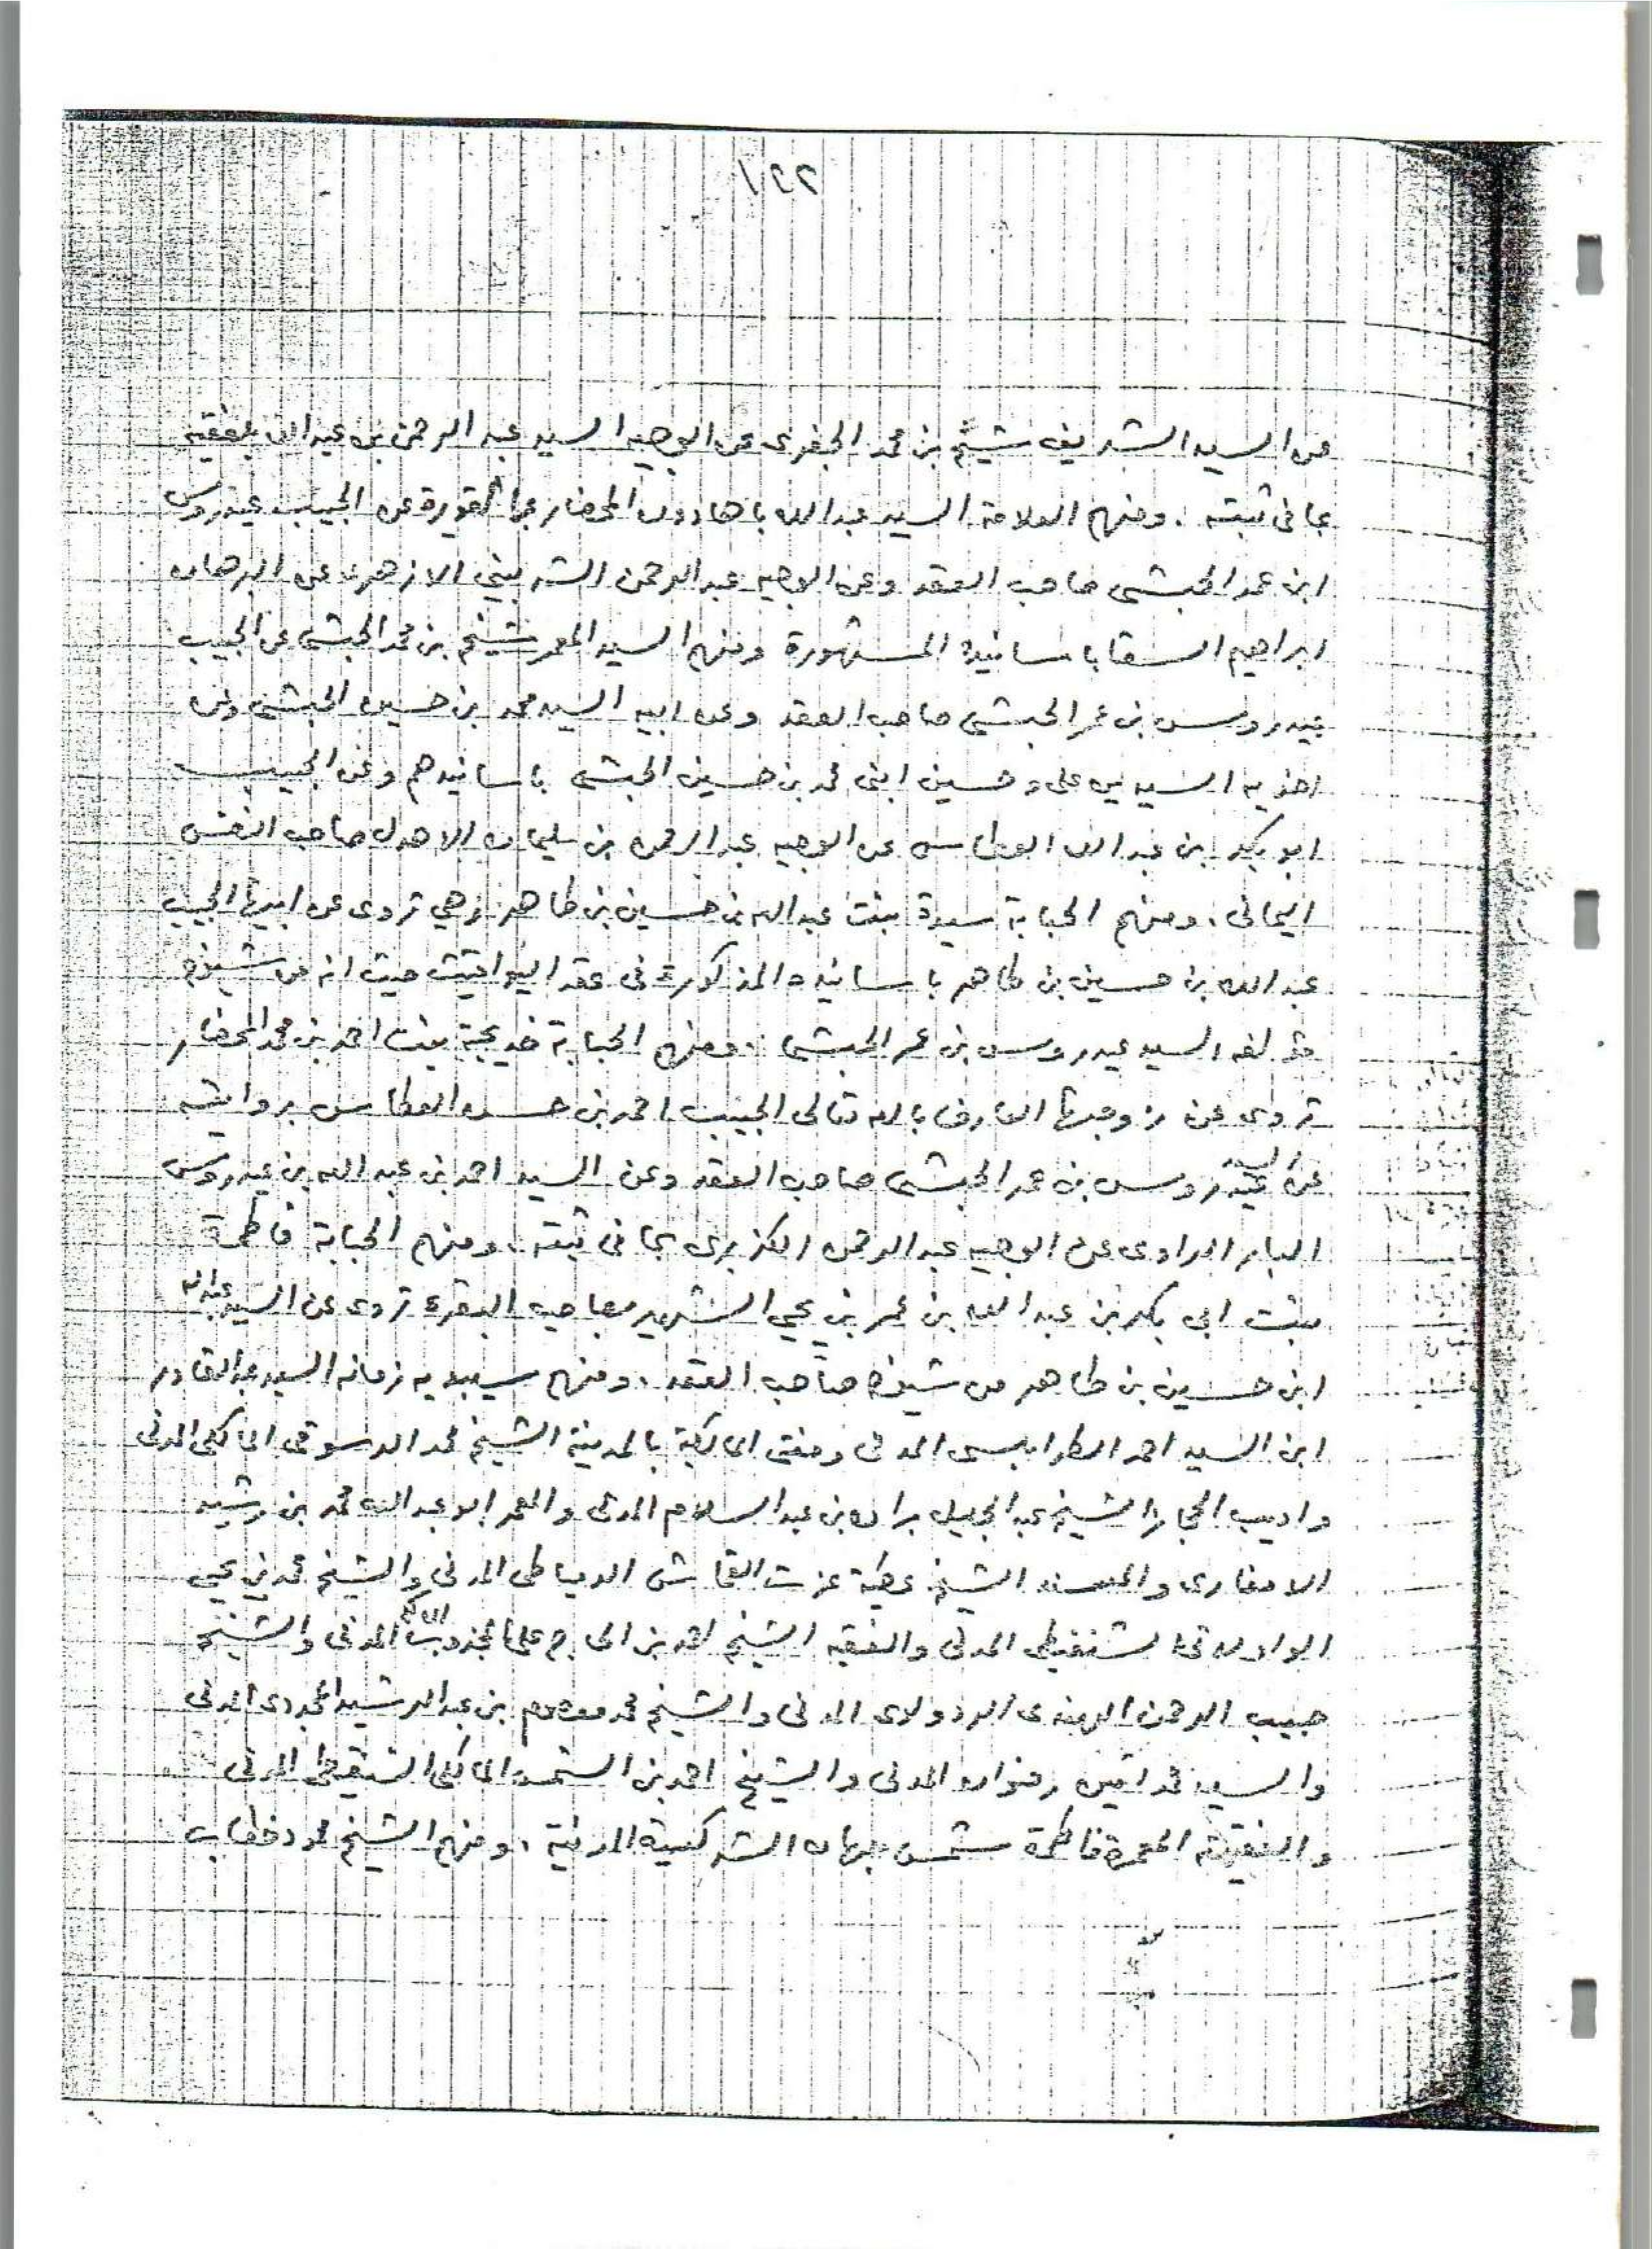 ١٢٢
عن السيد الشريف شيخ بن محمد الجفري عن الوجيه السيد عبد الرحمن بن عبد الله بلفقيه
بما في ثبته . ومنهم العلامة السيد عبد الله باهادون المحضار بما القويرة عن الحبيب عيدروس
ابن عمر الحبشي صاحب العقد وعن الوجيه عبد الرحمن الشربيني الازهري عن البرهان
ابراهيم السقا باسانيده المشهورة ومنهم السيد المعمر شيخ بن محمد الحبشي عن الحبيب
عيدروس بن عمر الحبشي صاحب العقد وعن ابيه السيد محمد بن حسين الحبشي وعن
اخويه السيدين علي وحسين ابني محمد بن حسين الحبشي باسانيدهم وعن الحبيب
ابو بكر ابن عبد الله العطاس عن الوجيه عبد الرحمن بن سليمان الاهدل صاحب النفس
اليماني . ومنهم الحبابة سيدة بنت عبد الله بن حسين بن طاهر وهي تروى عن ابيها الحبيب
عبد الله بن حسين بن طاهر باسانيده المذكورة في عقد اليواقيت حيث انه من شيوخ
مؤلفه السيد عيدروس بن عمر الحبشي . ومنهم الحبابة خديجة بنت احمد بن محمد المحضار
تروى عن زوجها العارف بالله تعالى الحبيب احمد بن حسن العطاس بروايته
عن السيد عيدروس بن عمر الحبشي صاحب العقد وعن السيد احمد بن عبد الله بن عيدروس
البار الراوى عن الوجيه عبد الرحمن الكزبرى بما في ثبته . ومنهم الحبابة فاطمة
بنت ابي بكر بن عبد الله بن عمر بن يحيى الشهير بصاحب البقرة تروى عن السيد عبد الله
ابن حسين بن طاهر من شيوخ صاحب العقد . ومنهم سيبويه زمانه السيد عبد القادر
ابن السيد احمد الطرابلسي المدني ومفتي المالكية بالمدينة الشيخ محمد الدسوقي المالكي المدني
واديب الحجاز الشيخ عبد الجليل براده بن عبد السلام المدني والمعمر ابو عبد الله محمد بن رشيد
الانصارى والمسند الشيخ عطية عزت القماش الدمياطي المدني والشيخ محمد بن يحيى
الولاتي الشنقيطي المدني والفقيه الشيخ احمد بن الحاج علي المجذوب المالكي المدني والشيخ
حبيب الرحمن الهندى الردولوى المدني والشيخ محمد معصوم بن عبد الرشيد المجددى المدني
والسيد محمد امين رضوان المدني والشيخ احمد بن الشمس المالكي الشنقيطي المدني
والفقيهة المعمرة فاطمة شمس جهان الشركسية المدنية . ومنهم الشيخ محمود خطاب